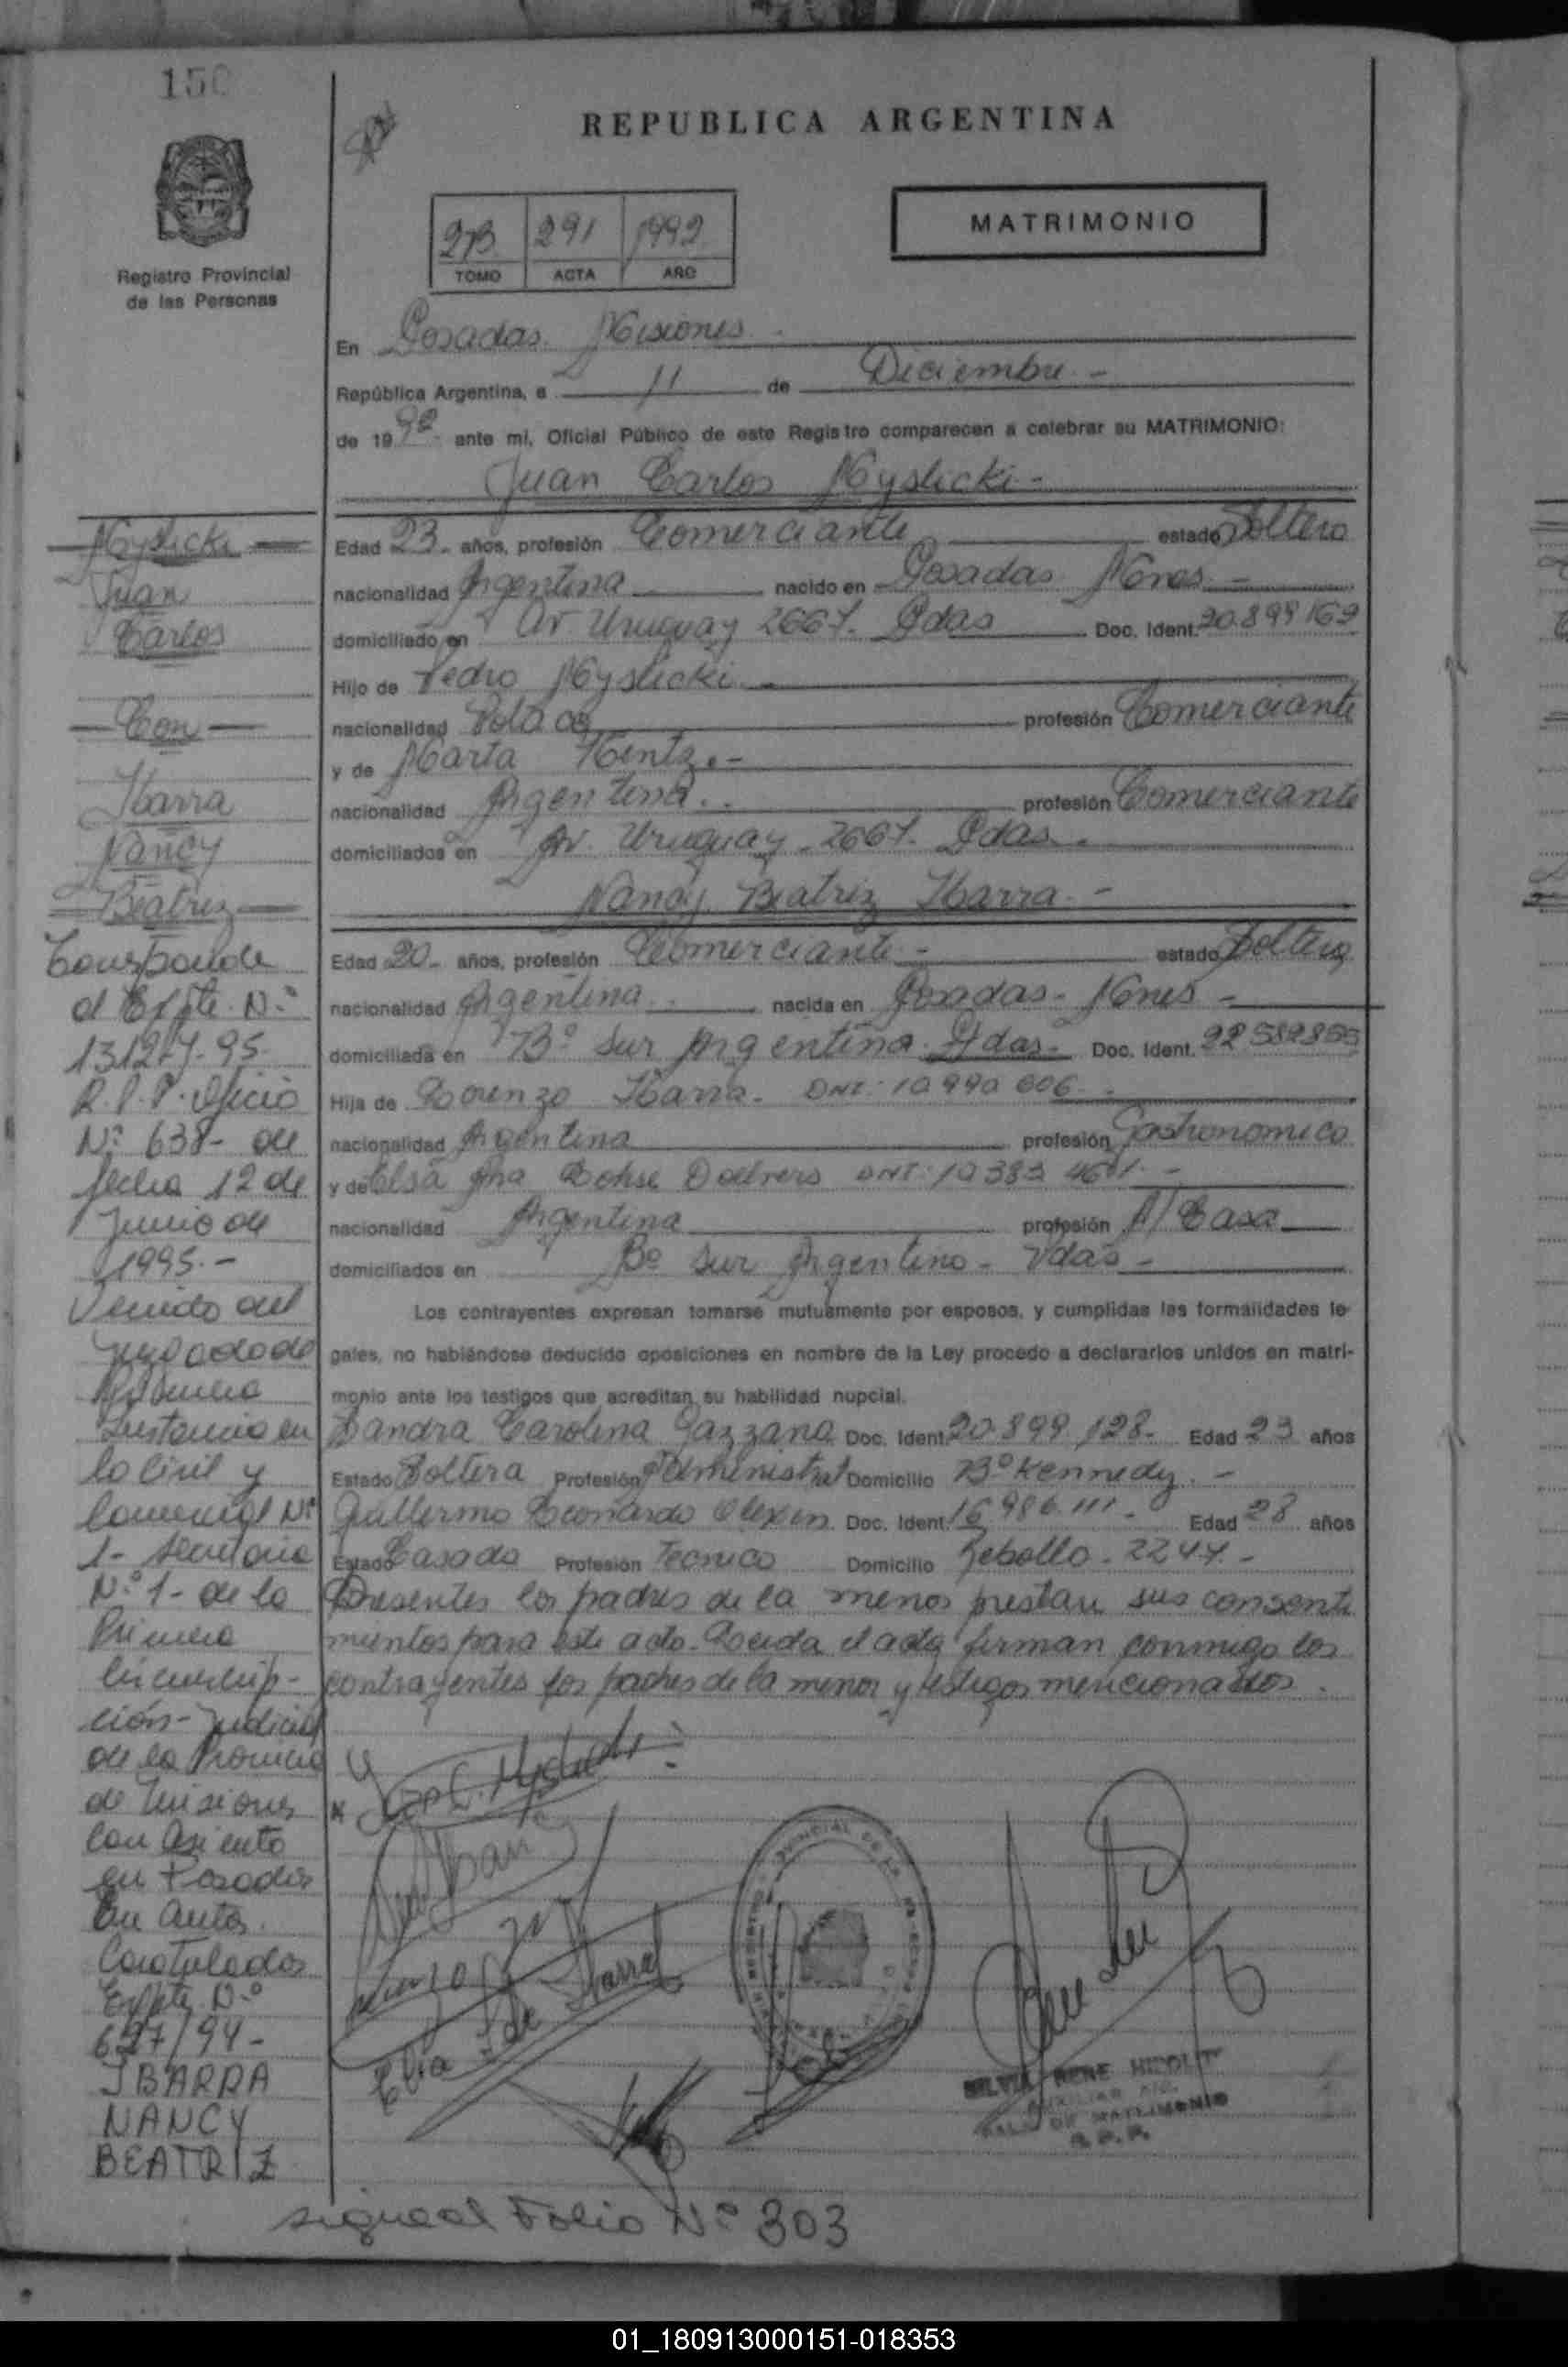 150
REPUBLICA ARGENTINA
MATRIMONIO
2B 291 1992
TOMO ACTA AÑO
Registro Provincial
de las Personas
En Posadas. Misiones.-
República Argentina, a 11 de Diciembre.-
de 1992- ante mí, Oficial Público de este Registro comparecen a celebrar su MATRIMONIO:
Juan Carlos Myslicki.-
Edad 23- años, profesión Comerciante estado Soltero
nacionalidad Argentina nacido en Posadas Mnes.-
domiciliado en Av Uruguay 2667. Pdas Doc. Ident. 20.899169
Hijo de Pedro Myslicki.-
nacionalidad Polaca profesión Comerciante
y de Marta Hentz.-
nacionalidad Argentina.. profesión Comerciante
domiciliados en Av. Uruguay 2667. Pdas.
Nancy Beatriz Ibarra.-
Edad 20- años, profesión Comerciante- estado Soltera
nacionalidad Argentina.. nacida en Posadas- Mnes-
domiciliada en B° Sur Argentino. Pdas- Doc. Ident. 22582855
Hija de Lorenzo Ibarra- DNI: 10.990.606.-
nacionalidad Argentina profesión Gastronomico
y de Elsa Ana DNI: 10.383.461.-
nacionalidad Argentina profesión A/ Casa
domiciliados en B° Sur Argentino- Pdas-
Los contrayentes expresan tomarse mutuamente por esposos, y cumplidas las formalidades le-
gales, no habiéndose deducido oposiciones en nombre de la Ley procedo a declararlos unidos en matri-
monio ante los testigos que acreditan su habilidad nupcial.
Sandra Carolina Gazzano Doc. Ident. 20.899.128- Edad 23 años
Estado Soltera Profesión Administrat Domicilio B° Kennedy.-
Guillermo Leonardo Doc. Ident. 16.986.111- Edad 28 años
Estado Casado Profesión Tecnico Domicilio Rebollo- 2247.-
Presentes los padres de la menor prestan sus consenti
mientos para este acto. Leida el acta firman conmigo los
contrayentes los padres de la menor y testigos mencionados.
Myslicki
Juan
Carlos
Con
Ibarra
Nancy
Beatriz
Corresponde
al Expte. N°
13127-7-95-
R.P.P. Oficio
N° 638- de
fecha 12 de
Junio de
1995.-
Venido del
Juzgado de
Primera
Instancia en
lo Civil y
Comercial N°
1- Secretaria
N° 1- de la
Primera
Circunscrip-
ción- Judicial
de la Provincia
de Misiones
con asiento
en Posadas
En autos
Caratulados
Expte. N°
627/94-
IBARRA
NANCY
BEATRIZ
SILVIA RENE
SALA DE MATRIMONIO
R. P. P.
sigue al Folio N° 303
01_180913000151-018353